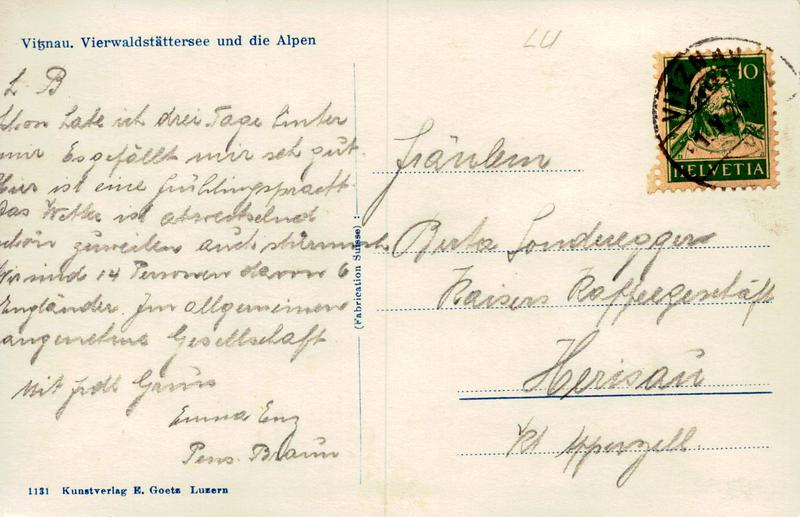 Vitznau. Vierwaldstättersee und die Alpen
LU
L B
schon habe ich drei Tage hinter
mir Es gefällt mir seh gut.
Hier ist eine frühlingspracht
das Wetter ist abwechselnd
schön zuweilen auch stürmisch
Wir sind 14 Personen davon 6
Engländer. Im allgemeinen
angenehme Gesellschaft
Mit frdl Gruss
Emma Enz
Pens. Braun
1131 Kunstverlag E. Goetz Luzern
(Fabrication Suisse)
VITZNAU
10
HELVETIA
Fräulein
Berta Sonderegger
Kaisers Kaffeegeschäft
Herisau
Kt Appenzell.